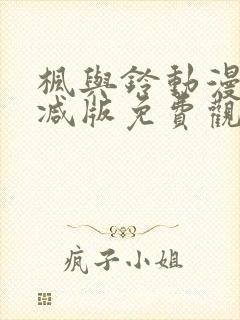 楓與鈴動漫
减版免費觀
疯子小姐